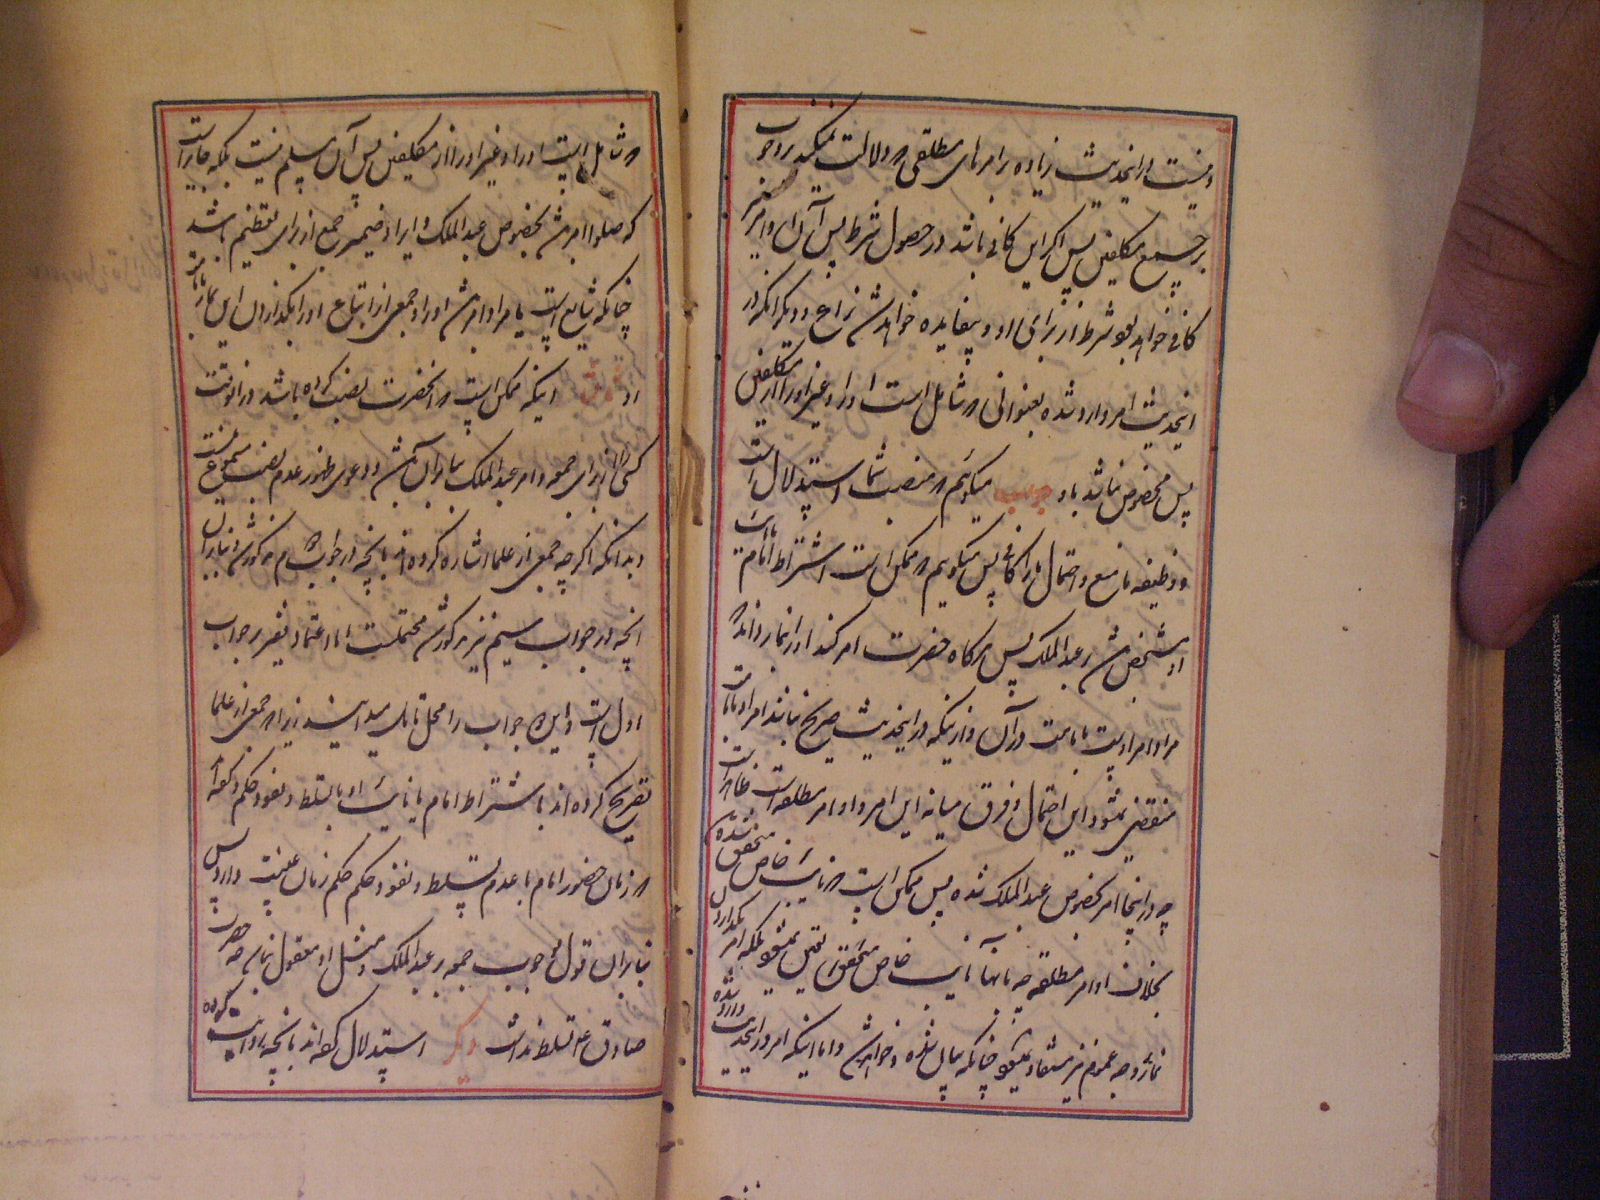 و نیست در اینحدیث زیاده بر امرهای مطلقی که دلالت نمیکند بر وجوب
بر جمیع مکلفین پس اگر این کافی باشد در حصول شرط پس آن اوامر نیز
کافی خواهد بود شرط از برای او و بیفایده خواهد شد نزاع و دیگر آنکه در
اینحدیث امر وارد شده بعنوانی که شامل است او را و غیر او را از مکلفین
پس مخصوص نباشد باو جواب میگوئیم که منصب شما استدلال است
و وظیفه ما منع و احتمال ما را کافی پس میگویم که ممکن است اشتراط امام یا نایب
او مشخص شد بر عبد الملک پس هرگاه حضرت امر کند او را بنماز و اند که
مراد امر اوست بامامت در آن و از اینکه در اینحدیث صریح نباشد امر او بامامت
منتفی نمیشود این احتمال و فرق میانه این امر و اوامر مطلقه است ظاهر است
چه در اینجا امر بخصوص عبد الملک شده پس ممکن است که نایب خاص متحقق شده
بخلاف اوامر مطلقه چه بانها نایب خاص متحقق یقین نمیشود بلکه امر
نماز وجه عموم نیز مستفاد نمیشود چنانکه بیان شده و خواهد شد و اما اینکه امر در اینحدیث وارد شده
که شامل است او را و غیر او را از مکلفین پس آن مسلم نیست بلکه جایز است
که صلوا امر باشد بخصوص عبد الملک و ایراد ضمیر جمع از برای تعظیم باشد
چنانکه شایع است یا مراد امر باشد او را و جمعی از اتباع او را بگذاردن این نماز بامامت
او اینکه ممکن است که انحضرت نصب کرده باشد در انوقت
کسی را از برای جمعه و امر عبد الملک بنابر آن باشد و دعوی ظهور عدم نصب مسموع نیست
و بدانکه اگر چه جمعی از علما اشاره کرده اند بانچه در جواب مذکور شد و بنابر آن
انچه در جواب سیم نیز مذکور شد محتملست اما اعتماد فقیر بر جواب
اول است و این جواب را محل تامل میدانند زیرا که جمعی از علما
تصریح کرده اند باشتراط امام یا نایب او با تسلط و نفوذ حکم و گفته
که زمان حضور امام با عدم تسلط و نفوذ حکم حکم زمان غیبت دارد پس
بنابر آن قول بوجوب جمعه بر عبد الملک و مثل او معقول نباشد چه حضرت
صادق ع تسلط نداشت دیگر استدلال کرده اند بانچه روایت کرده